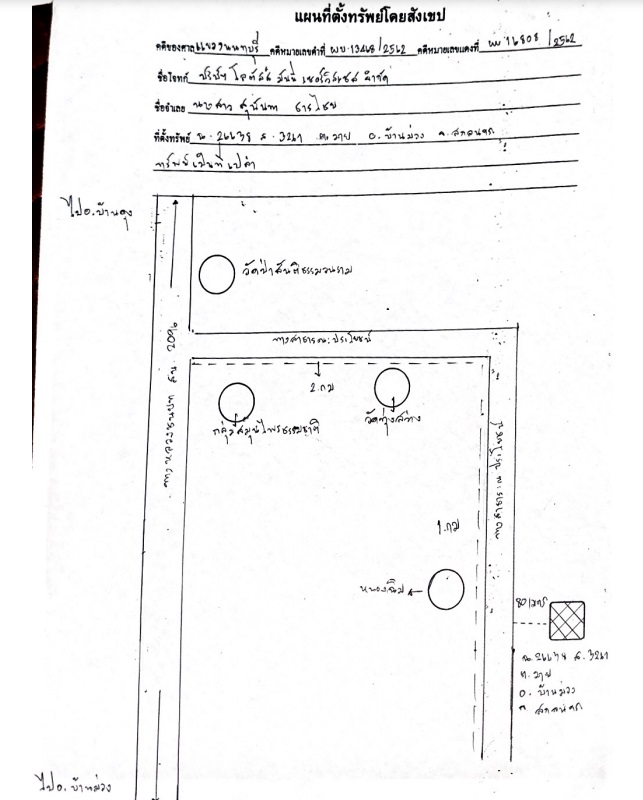 แผนที่ตั้งทรัพย์โดยสังเขป
คดีของศาล แขวงนนทบุรี คดีหมายเลขดำที่ ผบ.13468/2562 คดีหมายเลขแดงที่ ผบ 16808 /2562
ชื่อโจทก์ บริษัท จำกัด
ชื่อจำเลย นางสาว สุนันทา
ที่ตั้งทรัพย์ น. 26638 ส. 3261 ต. มาย อ. บ้านม่วง จ. สกลนคร
ทรัพย์เป็นที่เปล่า
ไป อ. บ้านดุง
วัดป่าสันติธรรมวนาราม
ทางสาธารณะประโยชน์
2 กม
ทางหลวงชนบท สน 2096
กลุ่มสมุนไพรธรรมชาติ
วัดทุ่งสว่าง
ทางสาธารณะประโยชน์
1 กม
80 เมตร
น. 26638 ส. 3261
ต. มาย
อ. บ้านม่วง
จ. สกลนคร
ไป อ. บ้านม่วง